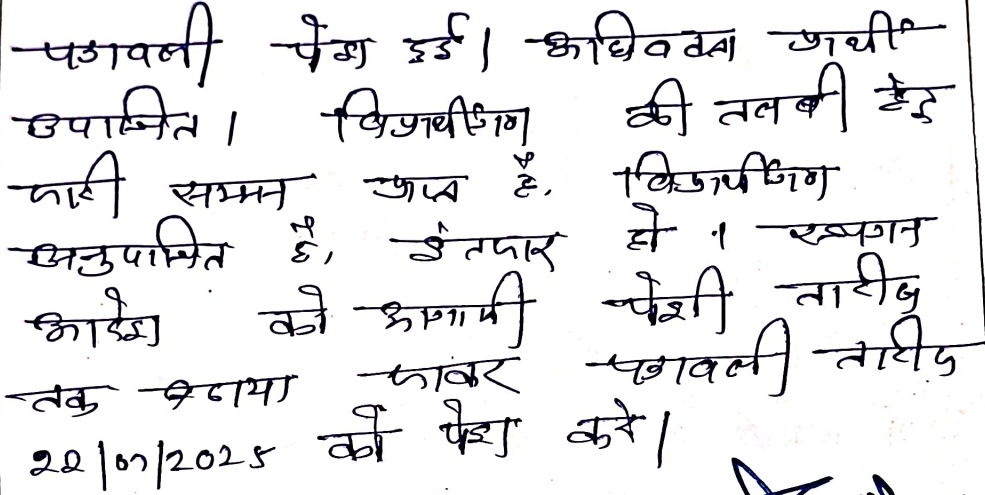 पत्रावली पेश हुई। अधिवक्ता प्रार्थी
उपस्थित। विप्रार्थीगण की तलबी हेतु
जारी सम्मन प्राप्त है, विप्रार्थीगण
अनुपस्थित है, इंतजार हो। स्थगन
आदेश को आगामी पेशी तारीख
तक बढाया जाकर पत्रावली तारीख
22/07/2025 को पेश करे।